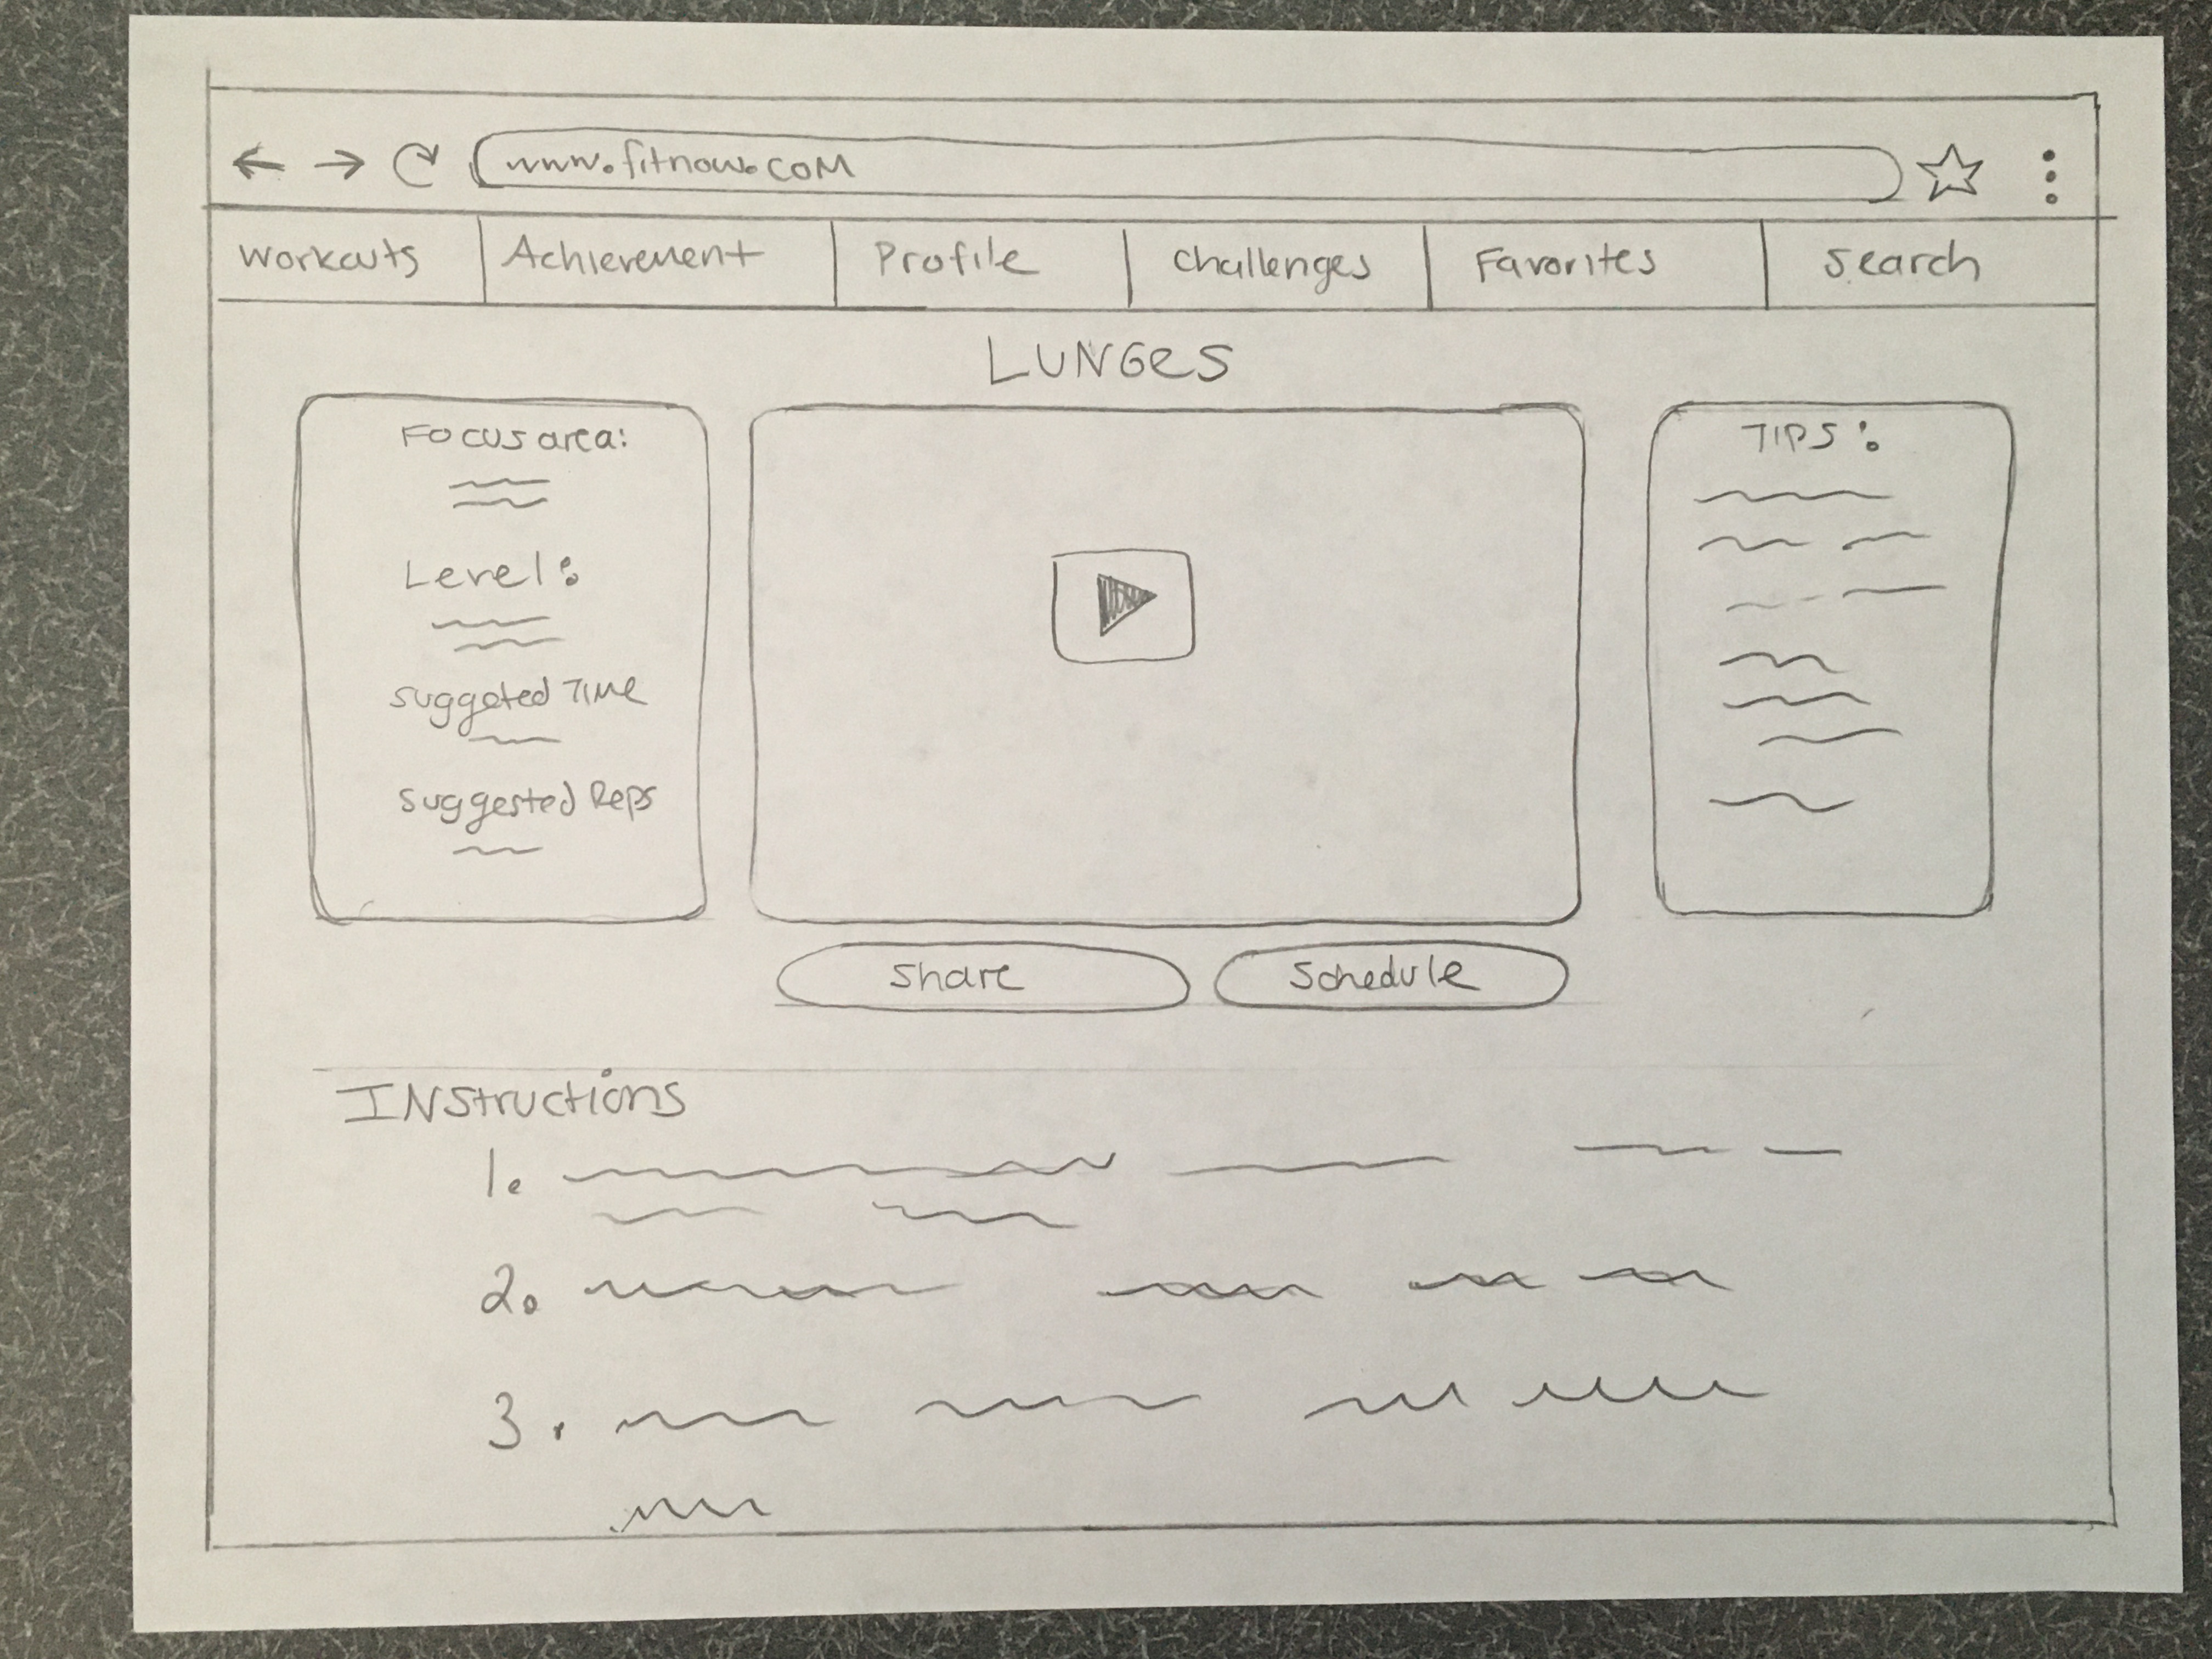 www.fitnow.com
Workouts Achievement Profile Challenges Favorites Search
LUNGes
Focus area:
Level:
Suggested Time
Suggested Reps
TIPS:
Share Schedule
INstructions
1.
2.
3.